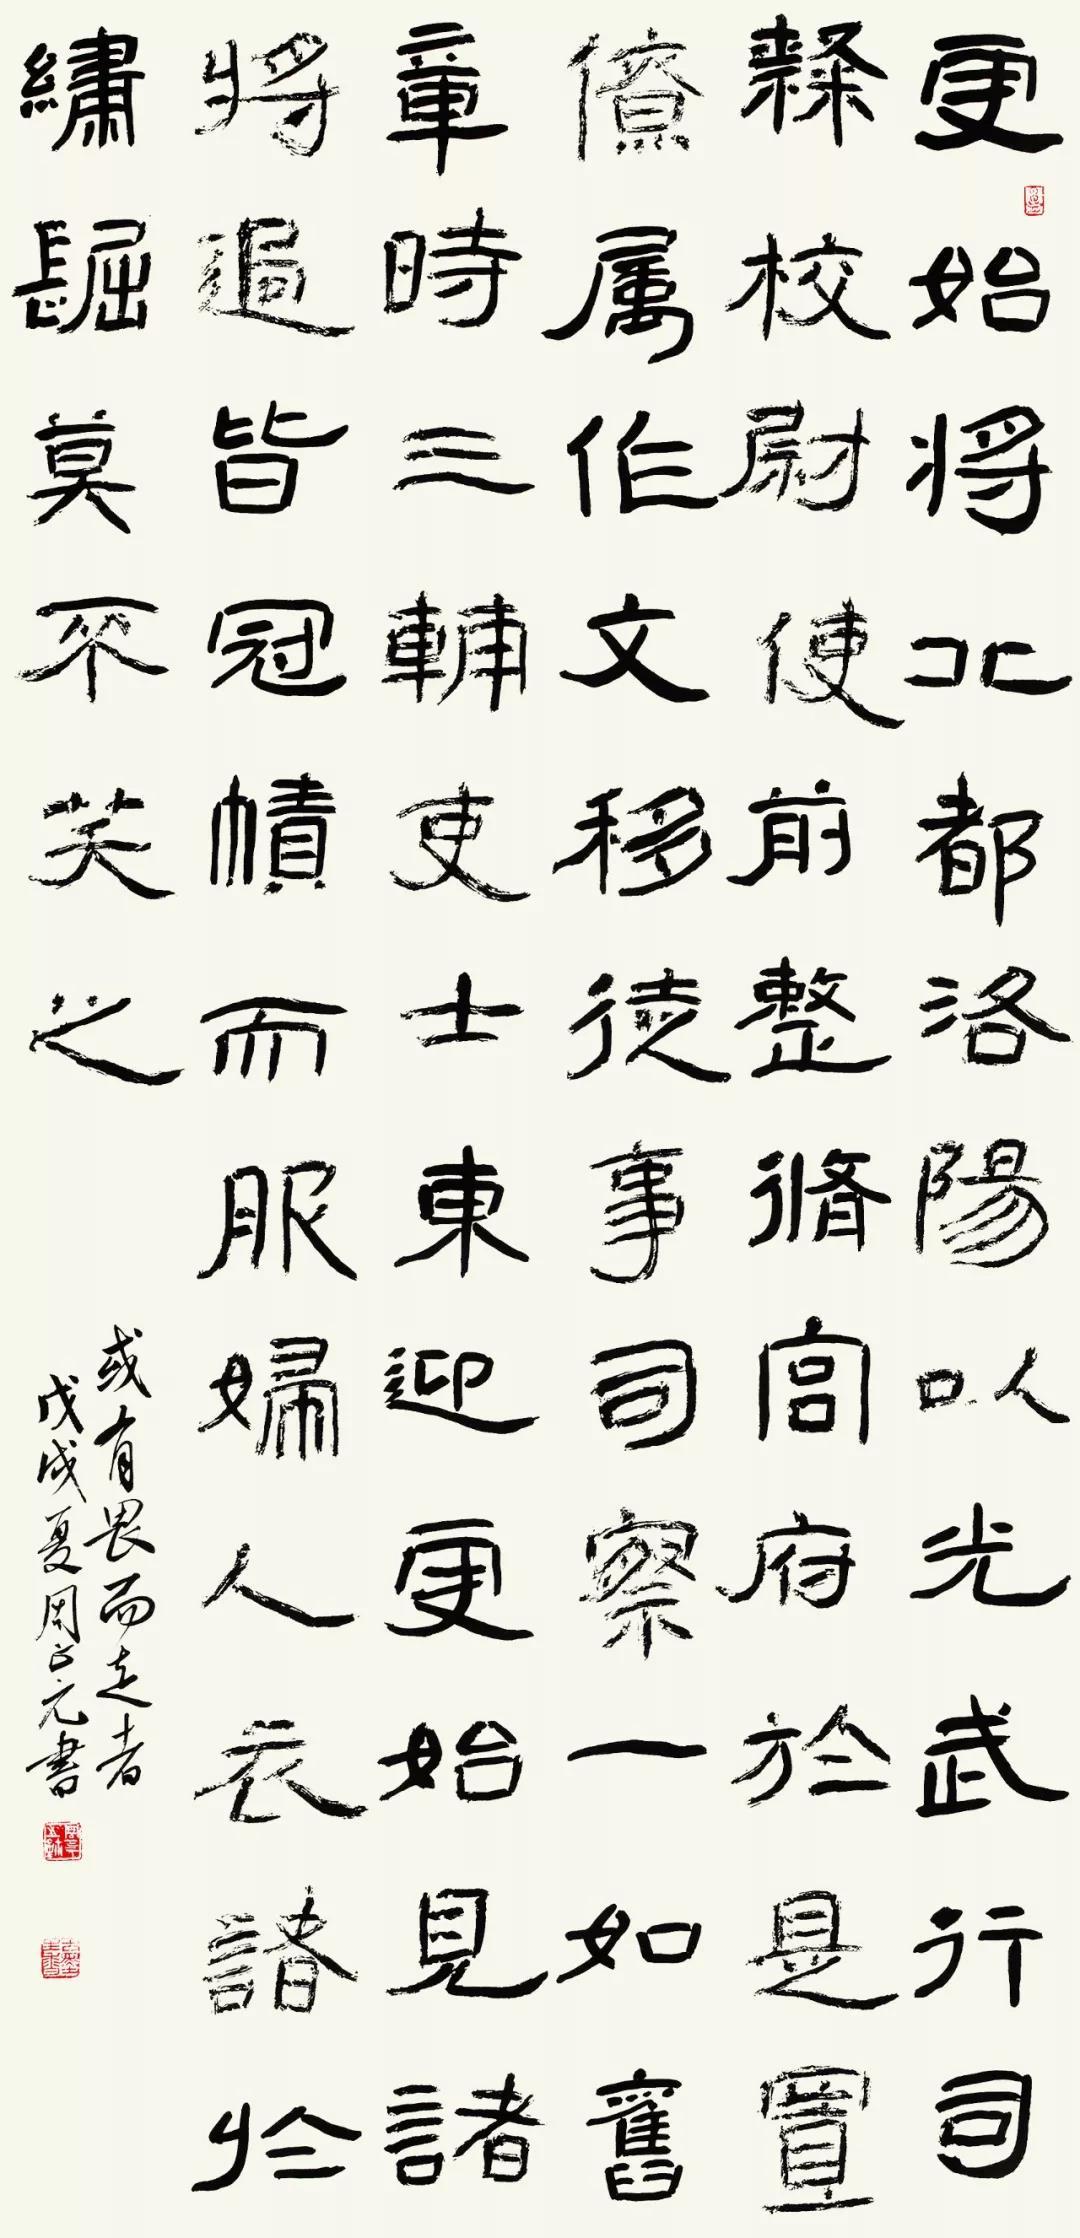 更始将北都洛陽以光武行司
隸校尉使前整脩宫府於是置
僚属作文移從事司察一如舊
章時三輔吏士東迎更始見諸
将過皆冠幘而服婦人衣諸於
繡镼莫不笑之
或有畏而走者
戊戌夏周正元書